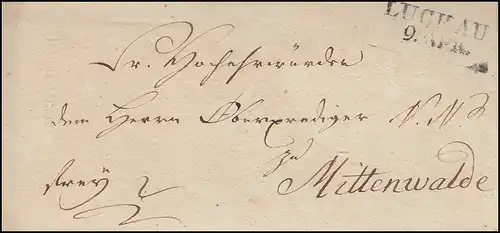 LUCKAU
9. APR.
Sr. Hochehrwürden
dem Herrn Oberprediger N. N.
zu
frey Mittenwalde